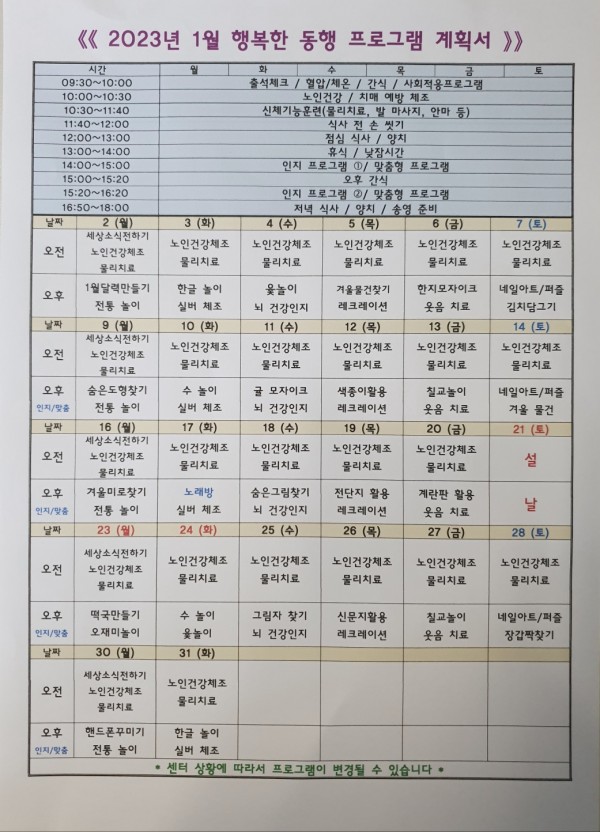 《《 2023년 1월 행복한 동행 프로그램 계획서 》》
시간 월 화 수 목 금 토
09:30~10:00 출석체크 / 혈압/체온 / 간식 / 사회적응프로그램
10:00~10:30 노인건강 / 치매 예방 체조
10:30~11:40 신체기능훈련(물리치료, 발 마사지, 안마 등)
11:40~12:00 식사 전 손 씻기
12:00~13:00 점심 식사 / 양치
13:00~14:00 휴식 / 낮잠시간
14:00~15:00 인지 프로그램 ①/ 맞춤형 프로그램
15:00~15:20 오후 간식
15:20~16:20 인지 프로그램 ②/ 맞춤형 프로그램
16:50~18:00 저녁 식사 / 양치 / 송영 준비
날짜 2 (월) 3 (화) 4 (수) 5 (목) 6 (금) 7 (토)
오전 세상소식전하기 노인건강체조 물리치료 노인건강체조 물리치료 노인건강체조 물리치료 노인건강체조 물리치료 노인건강체조 물리치료 노인건강체조 물리치료
오후 1월달력만들기 전통 놀이 한글 놀이 실버 체조 윷놀이 뇌 건강인지 겨울물건찾기 레크레이션 한지모자이크 웃음 치료 네일아트/퍼즐 김치담그기
날짜 9 (월) 10 (화) 11 (수) 12 (목) 13 (금) 14 (토)
오전 세상소식전하기 노인건강체조 물리치료 노인건강체조 물리치료 노인건강체조 물리치료 노인건강체조 물리치료 노인건강체조 물리치료 노인건강체조 물리치료
오후 인지/맞춤 숨은도형찾기 전통 놀이 수 놀이 실버 체조 귤 모자이크 뇌 건강인지 색종이활용 레크레이션 칠교놀이 웃음 치료 네일아트/퍼즐 겨울 물건
날짜 16 (월) 17 (화) 18 (수) 19 (목) 20 (금) 21 (토)
오전 세상소식전하기 노인건강체조 물리치료 노인건강체조 물리치료 노인건강체조 물리치료 노인건강체조 물리치료 노인건강체조 물리치료 설
오후 인지/맞춤 겨울미로찾기 전통 놀이 노래방 실버 체조 숨은그림찾기 뇌 건강인지 전단지 활용 레크레이션 계란판 활용 웃음 치료 날
날짜 23 (월) 24 (화) 25 (수) 26 (목) 27 (금) 28 (토)
오전 세상소식전하기 노인건강체조 물리치료 노인건강체조 물리치료 노인건강체조 물리치료 노인건강체조 물리치료 노인건강체조 물리치료 노인건강체조 물리치료
오후 인지/맞춤 떡국만들기 오재미놀이 수 놀이 윷놀이 그림자 찾기 뇌 건강인지 신문지활용 레크레이션 칠교놀이 웃음 치료 네일아트/퍼즐 장갑짝찾기
날짜 30 (월) 31 (화)
오전 세상소식전하기 노인건강체조 물리치료 노인건강체조 물리치료
오후 인지/맞춤 핸드폰꾸미기 전통 놀이 한글 놀이 실버 체조
* 센터 상황에 따라서 프로그램이 변경될 수 있습니다 *